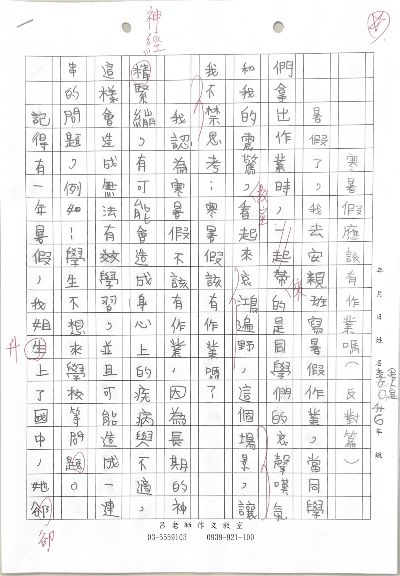 寒暑假應該有作業嗎(反對篇)
暑假了,我去安親班寫暑假作業,當同學
們拿出作業時,一起帶的是同學們的哀聲嘆氣
和我的震驚,看起來哀鴻遍野,這個場景,讓
我不禁思考:寒暑假該有作業嗎?
我認為寒暑假不該有作業,因為長期的神
精緊繃,有可能會造成身心上的疾病與不適,
這樣會造成無法有效學習,並且可能造成一連
串的問題,例如:學生不想來學松等問題。
記得有一年暑假,我姐生上了國中,她卻
神經
教室
來
升
卻
年 月 日 姓名
年 班
呂老師作文教室
03-5559103 0939-921-100